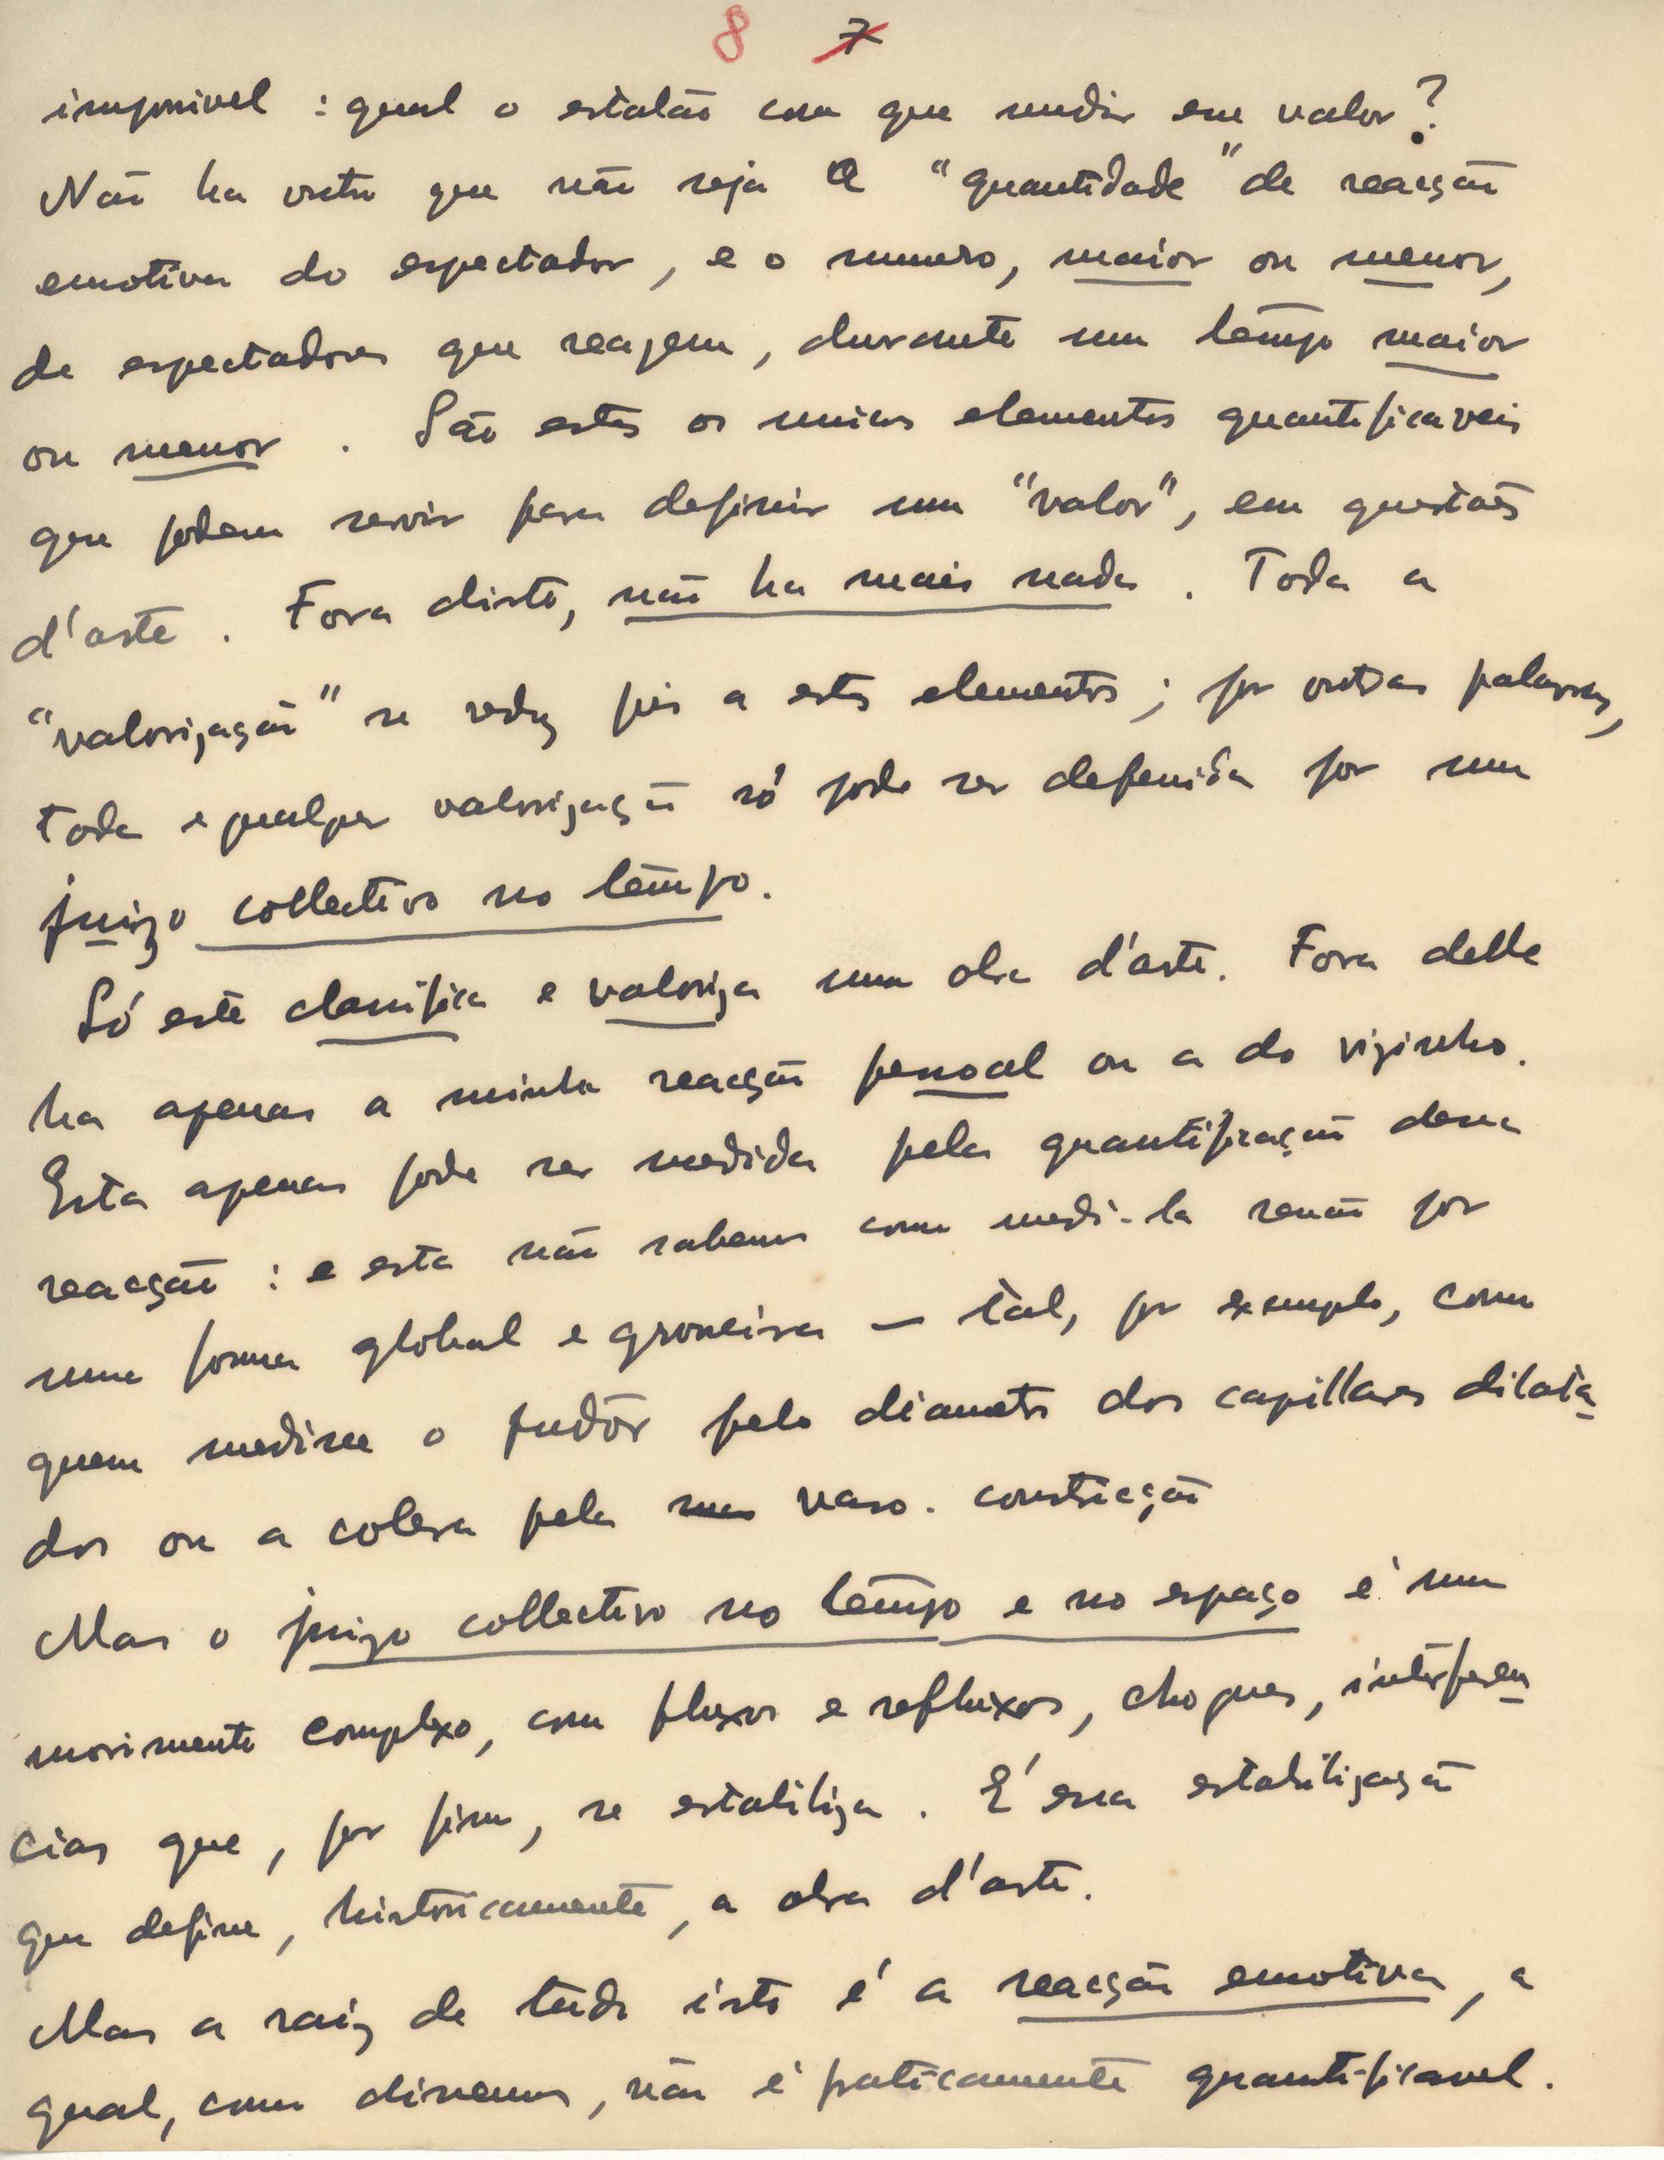 8 7
impossivel : qual o estalão com que medir esse valor?
Não ha outro que não seja a "quantidade" de reacção
emotiva do espectador, e o numero, maior ou menor,
de espectadores que reagem, durante um tempo maior
ou menor. São estes os unicos elementos quantificaveis
que podem servir para definir um "valor", em questões
d'arte. Fora disto, não ha mais nada. Toda a
"valorização" se reduz pois a estes elementos; por outras palavras,
toda e qualquer valorização só pode ser defenida por um
juizo collectivo no tempo.
Só este classifica e valoriza uma obra d'arte. Fora delle
ha apenas a minha reacção pessoal ou a do vizinho.
Esta apenas pode ser medida pela quantificação dessa
reacção : e esta não sabemos como medi-la senão por
uma forma global e grosseira — tal, por exemplo, como
quem medisse o pudôr pelo diametro dos capillares dilata-
dos ou a colera pela vaso-constricção
Mas o juizo collectivo no tempo e no espaço é um
movimento complexo, com fluxos e refluxos, choques, interferen-
cias que, por fim, se estabiliza. É essa estabilização
que define, historicamente, a obra d'arte.
Mas a raiz de tudo isto é a reacção emotiva, a
qual, como dissemos, não é praticamente quantificavel.